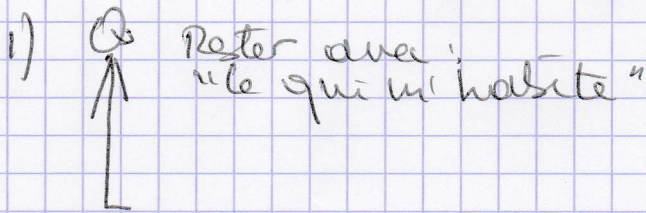 1) Q Rester avec :
"ce qui m'habite"